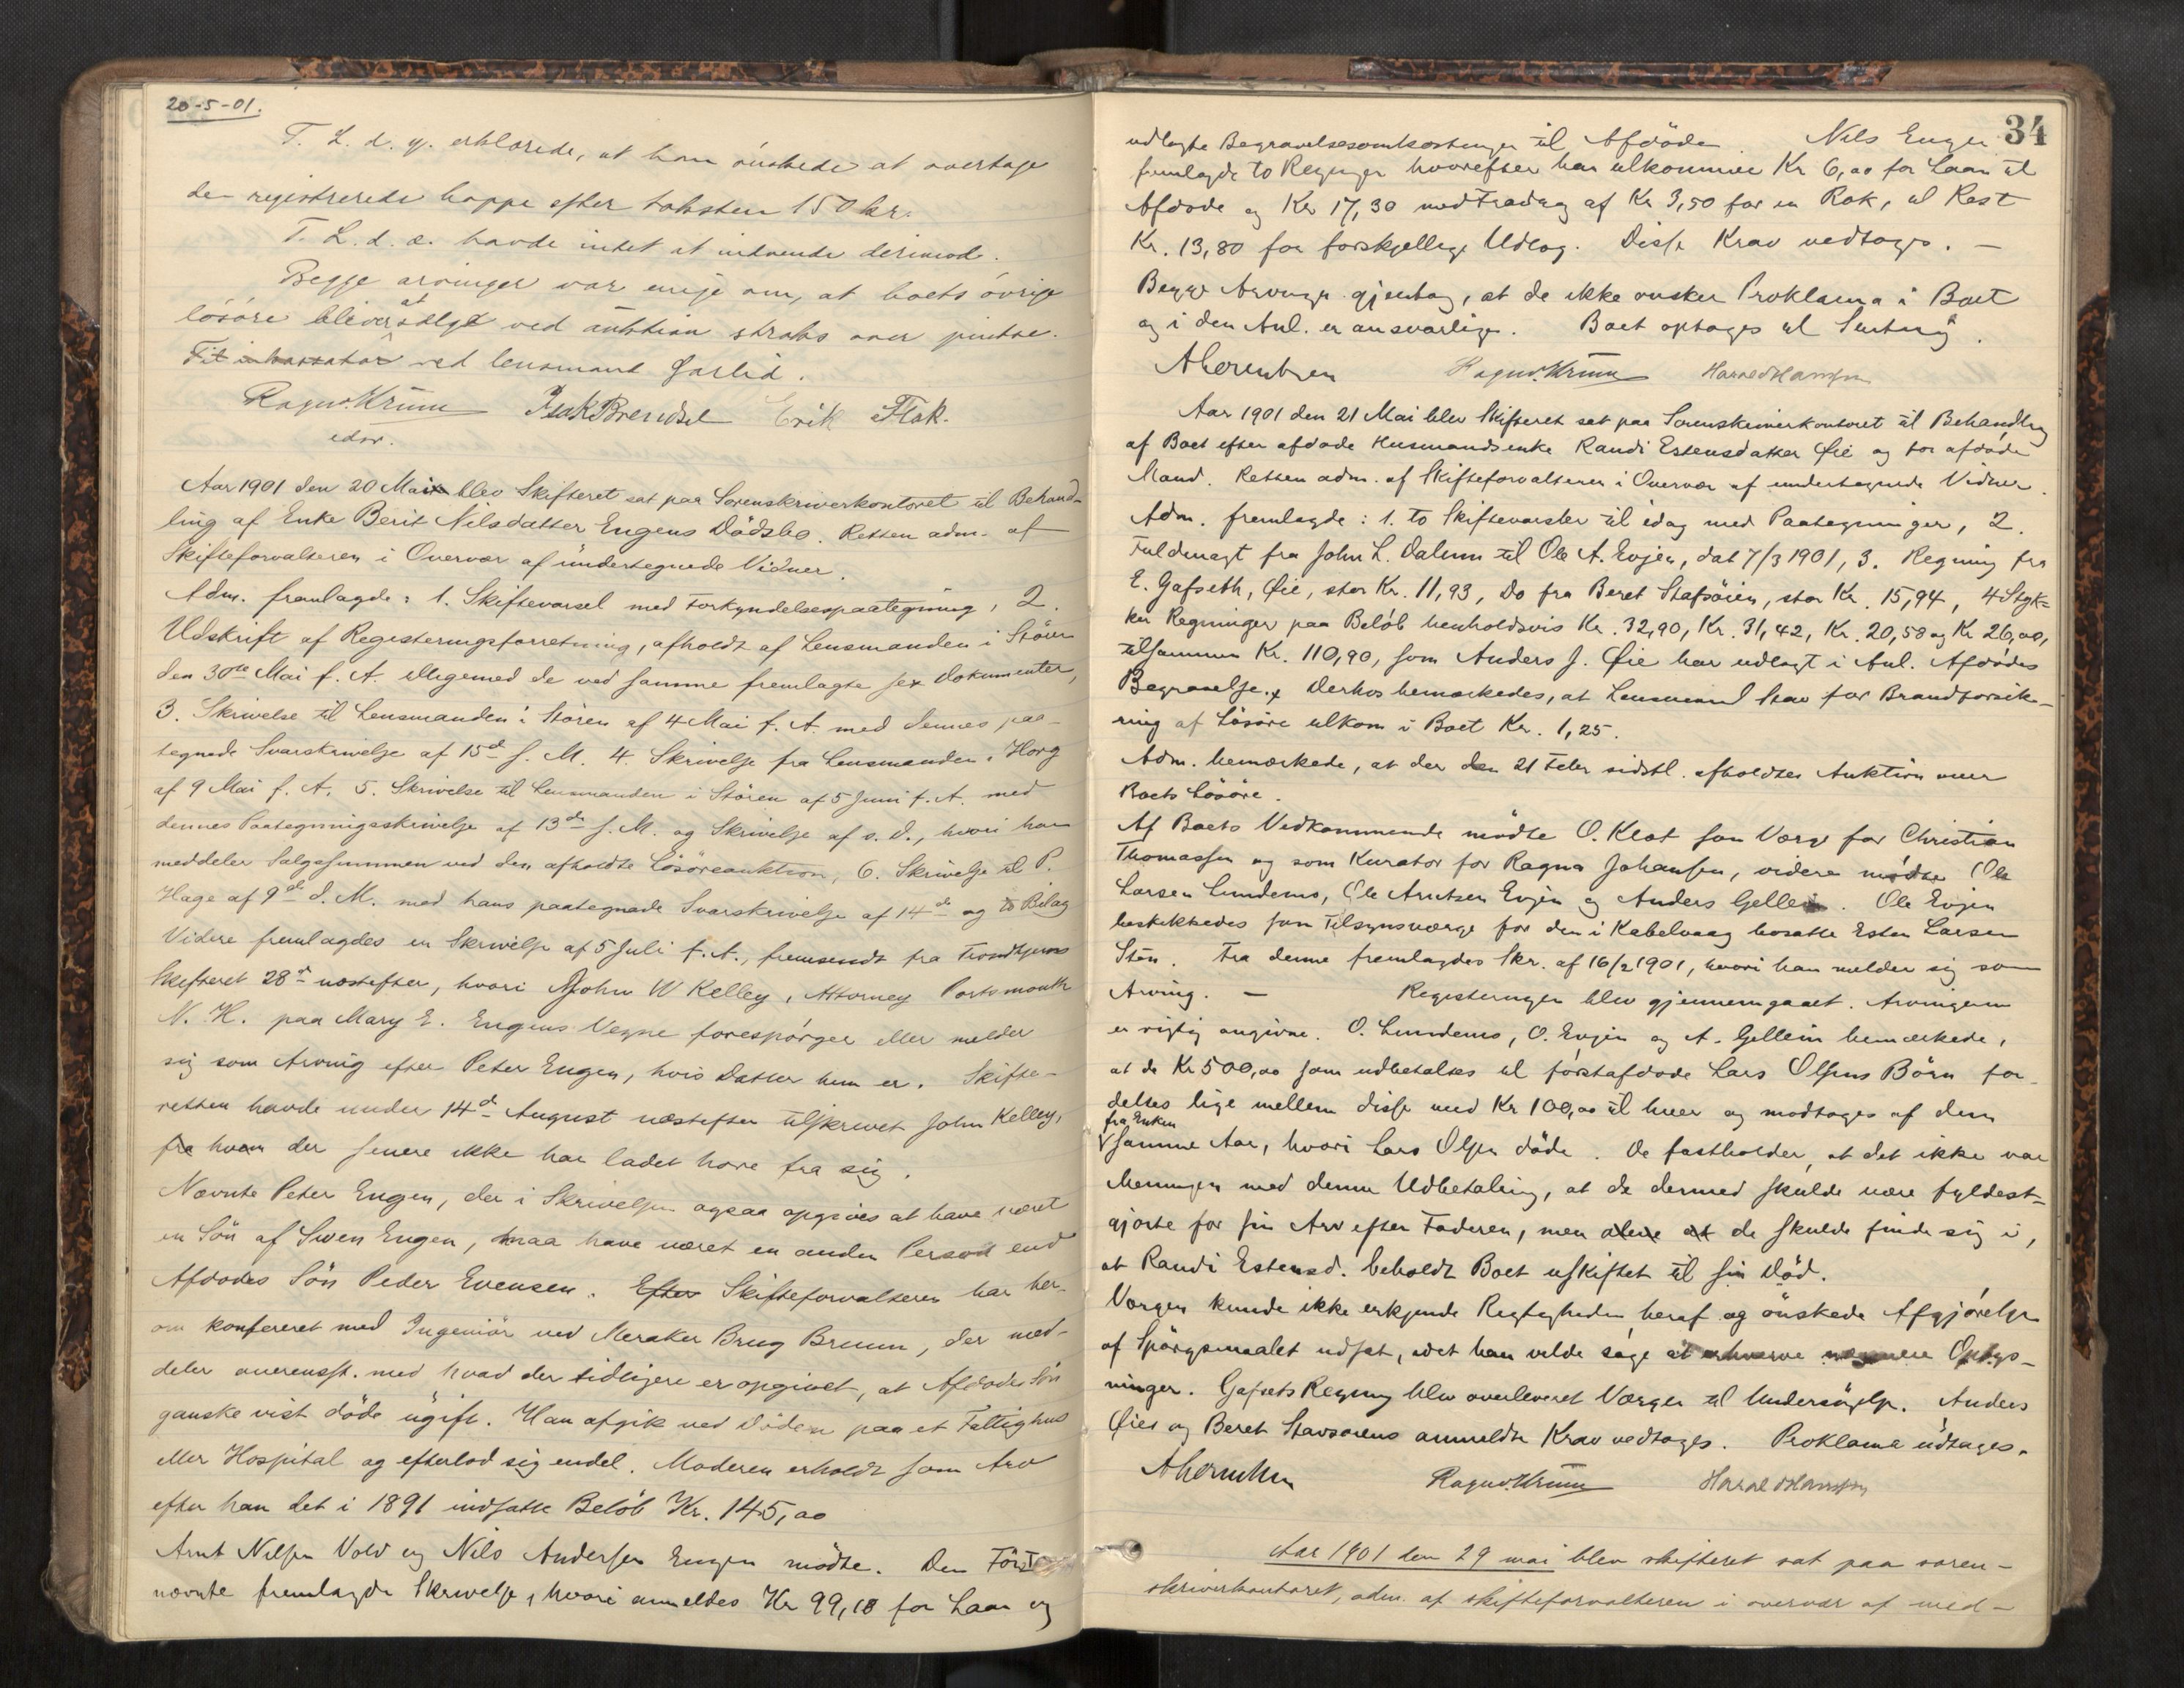 20-5-01.
T. L. d. y. erklærede, at han ønskede at overtage
den registrerede hoppe efter taksten 150 kr.
T. L. d. æ. havde intet at indvende derimod.
Begge arvinger var enige om, at boets øvrige
løsøre blever at sælge ved auktion straks over pintse.
Til inkassator ved lensmand Garlid.
Ragnv. Krum Isak Brendsel Erik Flak.
edsv.
Aar 1901 den 20 Mai blev Skifteret sat paa Sorenskriverkontoret til Behand-
ling af Enke Berit Nilsdatter Engens Dødsbo. Retten adm. af
Skifteforvalteren i Overvær af undertegnede Vidner.
Adm. fremlagde: 1. Skiftevarsel med Forkyndelsespaategning, 2.
Udskrift af Registeringsforretning, afholdt af Lensmanden i Støren
den 30te Mai f. A. alligemed de ved samme fremlagte sex Dokumenter,
3. Skrivelse til Lensmanden i Støren af 4 Mai f. A. med dennes paa-
tegnede Svarskrivelse af 15de s. M. 4. Skrivelse fra Lensmanden i Horg
af 9 Mai f. A. 5. Skrivelse til Lensmanden i Støren af 5 Juni f. A. med
dennes Paategningsskrivelse af 13de s. M. og Skrivelse af s. D., hvori han
meddeler Salgssummen ved den afholdte Løsøreauktion, 6. Skrivelse til P.
Hage af 9de d. M. med hans paategnede Svarskrivelse af 14de og to Bilag
Videre fremlagdes en Skrivelse af 5 Juli f. A., fremsendt fra Trondhjems
Skifteret 28de næstefter, hvori John W Kelley, Attorney Portsmouth
N. H. paa Mary E. Engens Vegne forespørger eller melder
sig som Arving efter Peter Engen, hvis Datter hun er. Skifte-
retten havde under 14de August næstefter tilskrevet John Kelley,
fra hvem der senere ikke har ladet høre fra sig.
Nævnte Peter Engen, der i Skrivelsen ogsaa opgives at have været
en Søn af Swen Engen, maa have været en anden Person end
Afdødes Søn Peder Evensen. Efter Skifteforvalteren har her-
om konfereret med Ingeniør ved Meraker Brug Bruun, der med-
deler overensst. med hvad der tidligere er opgivet, at Afdødes Søn
ganske vist døde ugift. Han afgik ved Døden paa et Fattighus
eller Hospital og efterlod sig endel. Moderen erholdt som Arv
efter han det i 1891 indsatte Beløb Kr. 145,00
Arnt Nilsen Vold og Nils Andersen Engen mødte. Den Først
nævnte fremlagde Skrivelse, hvori anmeldes Kr 99,18 for Laan og
34
udlagte Begravelsesomkostninger til Afdøde. Nils Engen
fremlagde to Regninger hvorefter han tilkommer Kr 6,00 for Laan til
Afdøde og Kr 17,30 med Fradrag af Kr 3,50 for en Rok, til Rest
Kr. 13,80 for forskjellige Udlæg. Disse Krav vedtoges. —
Begge Arvinger gjentog, at de ikke ønsker Proklama i Boet
og i den Anl. er ansvarlige. Boet optages til Slutning.
Ragnv. Krum Harald Hansen
Aar 1901 den 21 Mai blev Skifteret sat paa Sorenskriverkontoret til Behandling
af Boet efter afdøde Husmandsenke Randi Estensdatter Øie og før afdøde
Mand. Retten adm. af Skifteforvalteren i Overvær af undertegnede Vidner.
Adm. fremlagde: 1. to Skiftevarsler til idag med Paategninger, 2.
Fuldmagt fra John L. Dalum til Ole A. Evjen, dat 7/3 1901, 3. Regning fra
E. Gafseth, Øie, stor Kr. 11,93, Do fra Beret Stafsøien, stor Kr. 15,94, 4 Styk-
ker Regninger paa Beløb henholdsvis Kr. 32,90, Kr. 31,42, Kr. 20,58 og Kr 26,00,
tilsammen Kr. 110,90, som Anders J. Øie har udlagt i Anl. Afdødes
Begravelse. Derhos bemærkedes, at Lensmand Stav for Brandforsik-
ring af Løsøre tilkom i Boet Kr. 1,25.
Adm. bemærkede, at der den 21 Febr sidstl. afholdtes Auktion over
Boets Løsøre.
Af Boets Vedkommende mødte O. Klot som Værge for Christian
Thomassen og som Kurator for Ragna Johansen, videre mødte Ole
Larsen Lundemo, Ole Arntsen Evjen og Anders Gellein. Ole Evjen
beskikkedes som Tilsynsværge for den i Kabelvaag bosatte Esten Larsen
Støn. Fra denne fremlagdes Skr. af 16/2 1901, hvori han melder sig som
Arving. — Registeringen blev gjennemgaaet. Arvingerne
er rigtig angivne. O. Lundemo, O. Evjen og A. Gellein bemærkede,
at de Kr 500,00 som udbetaltes til førstafdøde Lars Olsens Børn for-
deltes lige mellem disse med Kr 100,00 til hver og modtoges af dem
fra Enken
samme Aar, hvori Lars Olsen døde. De fastholder, at det ikke var
Meningen med denne Udbetaling, at de dermed skulde være fyldest-
gjorte for sin Arv efter Faderen, men alene at de skulde finde sig i,
at Randi Estensd. beholdt Boet uskiftet til sin Død.
Værgen kunde ikke erkjende Rigtigheden heraf og ønskede Afgjørelsen
af Spørgsmaalet udsat, idet han vilde søge at erhverve nærmere Oplys-
ninger. Gafsets Regning blev overleveret Værgen til Undersøgelse. Anders
Øies og Beret Stavsøiens anmeldte Krav vedtoges. Proklama udtages.
Ragnv. Krum Harald Hansen
Aar 1901 den 29 mai blev skifteret sat paa soren-
skriverkontoret, adm. af skifteforvalteren i overvær af med-